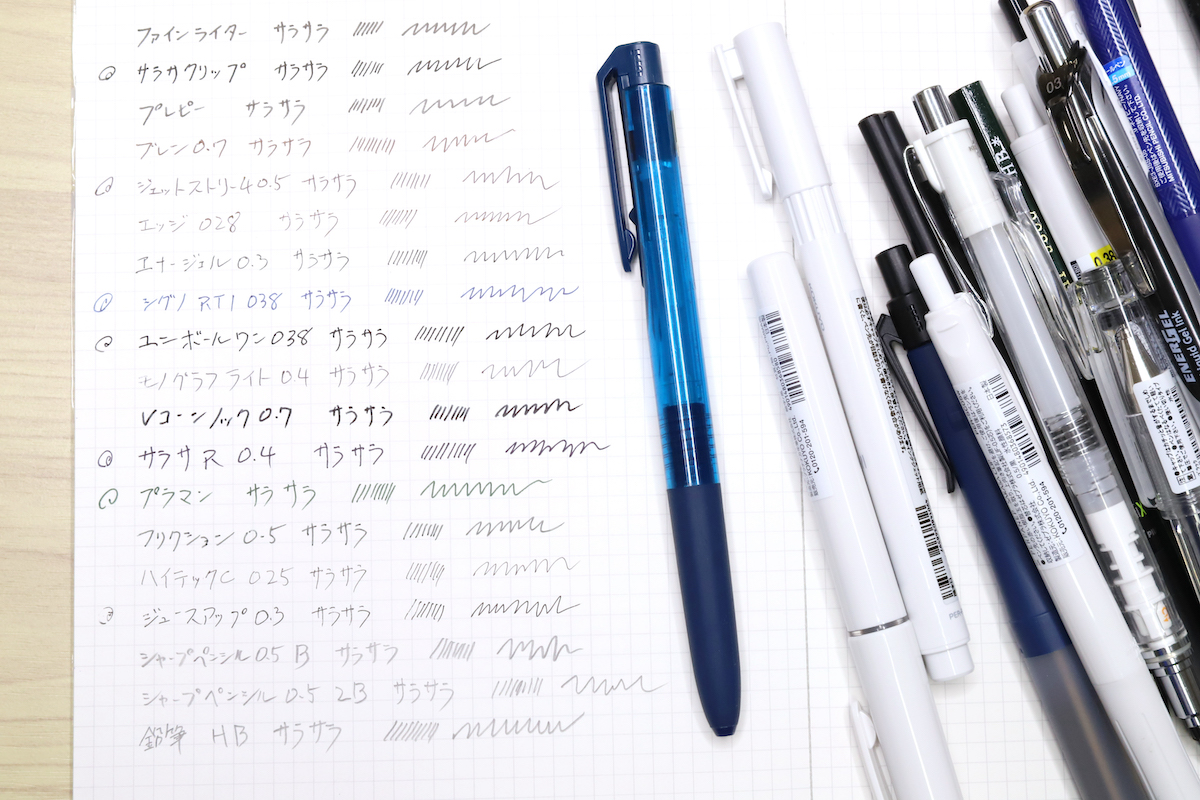 ファインライター サラサラ
サラサクリップ サラサラ
プレピー サラサラ
ブレン0.7 サラサラ
ジェットストリーム0.5 サラサラ
エッジ 028 サラサラ
エナージェル 0.3 サラサラ
シグノ RT1 038 サラサラ
ユニボールワン 038 サラサラ
モノグラフライト 04 サラサラ
Vコーンノック 0.7 サラサラ
サラサR 0.4 サラサラ
プラマン サラサラ
フリクション 0.5 サラサラ
ハイテックC 025 サラサラ
ジュースアップ 0.3 サラサラ
シャープペンシル 0.5 B サラサラ
シャープペンシル 0.5 2B サラサラ
鉛筆 HB サラサラ
03
HB
MITSUBISHI PENCIL CO.,LTD.
0.38
ENERGEL
KOKUYO Co.,Ltd.
0120-201-594
日本製
KOKUYO Co.,Ltd.
0120-201-594
日本製